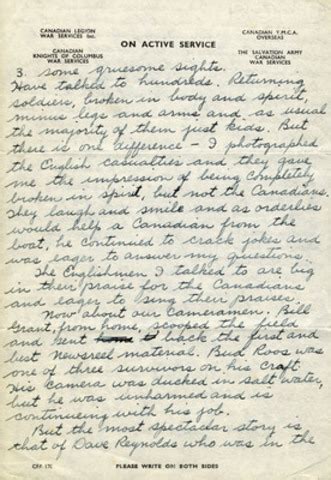 CANADIAN LEGION
WAR SERVICES Inc.
CANADIAN
KNIGHTS OF COLUMBUS
WAR SERVICES
ON ACTIVE SERVICE
CANADIAN Y.M.C.A.
OVERSEAS
THE SALVATION ARMY
CANADIAN
WAR SERVICES
3. some gruesome sights.
Have talked to hundreds. Returning
soldiers, broken in body and spirit,
minus legs and arms and as usual
the majority of them just kids. But
there is one difference - I photographed
the English casualties and they gave
me the impression of being completely
broken in spirit, but not the Canadians.
They laugh and smile and as orderlies
would help a Canadian from the
boat, he continued to crack jokes and
was eager to answer my questions.
The Englishmen I talked to are big
in their praise for the Canadians
and eager to sing their praises.
Now about our Cameramen. Bill
Grant, from home, scooped the field
and sent back the first and
best Newsreel material. Bud Roos was
one of three survivors on his craft
His camera was ducked in salt water,
but he was unharmed and is
continueing with his job.
But the most spectacular story is
that of Dave Reynolds who was in the
PLEASE WRITE ON BOTH SIDES